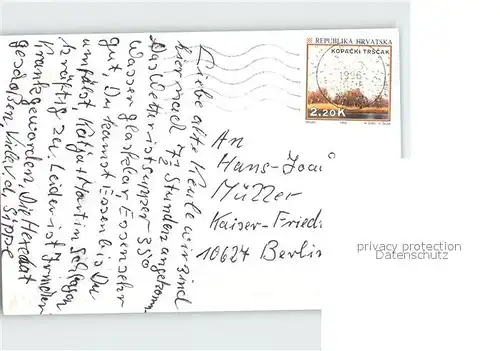 Liebe alte Keule wir sind
hier nach 7½ Stunden angekomm.
Das Wetter ist super 35°
Wasser glasklar, Essen sehr
gut, Du kannst Essen bis Du
umfällst, Katja + Martin schlagen
kräftig zu. Leider ist
Krank geworden, Die Hexe hat
geschossen, Viele v. d. Sippe
REPUBLIKA HRVATSKA
KOPAČKI TRŠČAK
1996
2.20K
An
Hans-Joac
Müller
Kaiser-Friedr
10624 Berlin
privacy protection
Datenschutz